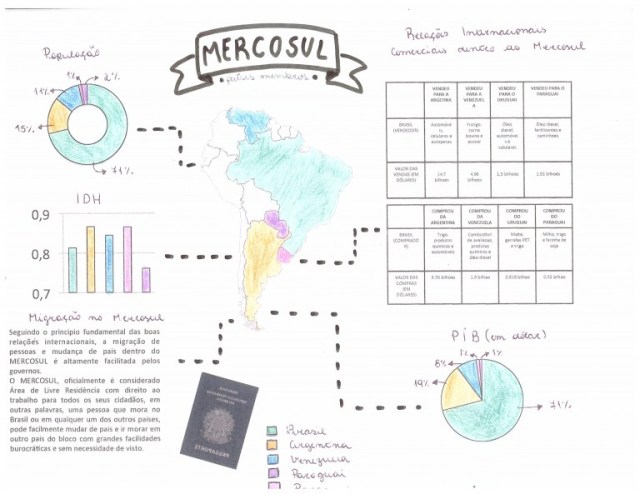 MERCOSUL
países membros
População
1%
2%
11%
15%
71%
IDH
0,9
0,8
0,7
Migração no Mercosul
Seguindo o principio fundamental das boas
relações internacionais, a migração de
pessoas e mudança de pais dentro do
MERCOSUL é altamente facilitada pelos
governos.
O MERCOSUL, oficialmente é considerado
Área de Livre Residência com direito ao
trabalho para todos os seus cidadãos, em
outras palavras, uma pessoa que mora no
Brasil ou em qualquer um dos outros paises,
pode facilmente mudar de pais e ir morar em
outro pais do bloco com grandes facilidades
burocráticas e sem necessidade de visto.
Relações Internacionais
Comerciais dentro do Mercosul
VENDEU PARA A ARGETINA
VENDEU PARA A VENEZUELA
VENDEU PARA O URUGUAI
VENDEU PARA O PARAGUAI
BRASIL (VENDEDOR)
Automóveis, celulares e autopeças
Frango, carne bovina e açúcar
Óleo diesel, automóveis e celulares
Óleo diesel, fertilizantes e caminhões
VALOR DAS VENDAS (EM DÓLARES)
bilhoes
bilhoes
bilhoes
bilhoes
COMPROU DA ARGENTINA
COMPROU DA VENEZUELA
COMPROU DO URUGUAI
COMPROU DO PARAGUAI
BRASIL (COMPRADOR)
Trigo, produtos químicos e automóveis
Combustível de aviação, produtos químicos e óleo diesel
Malte, garrafas PET e trigo
Milho, trigo e farinha de soja
VALOR DAS COMPRAS (EM DÓLARES)
bilhoes
bilhoes
bilhoes
bilhoes
PIB (em dólar)
1%
1%
8%
19%
71%
PASSAPORTE
Brasil
Argentina
Venezuela
Paraguai